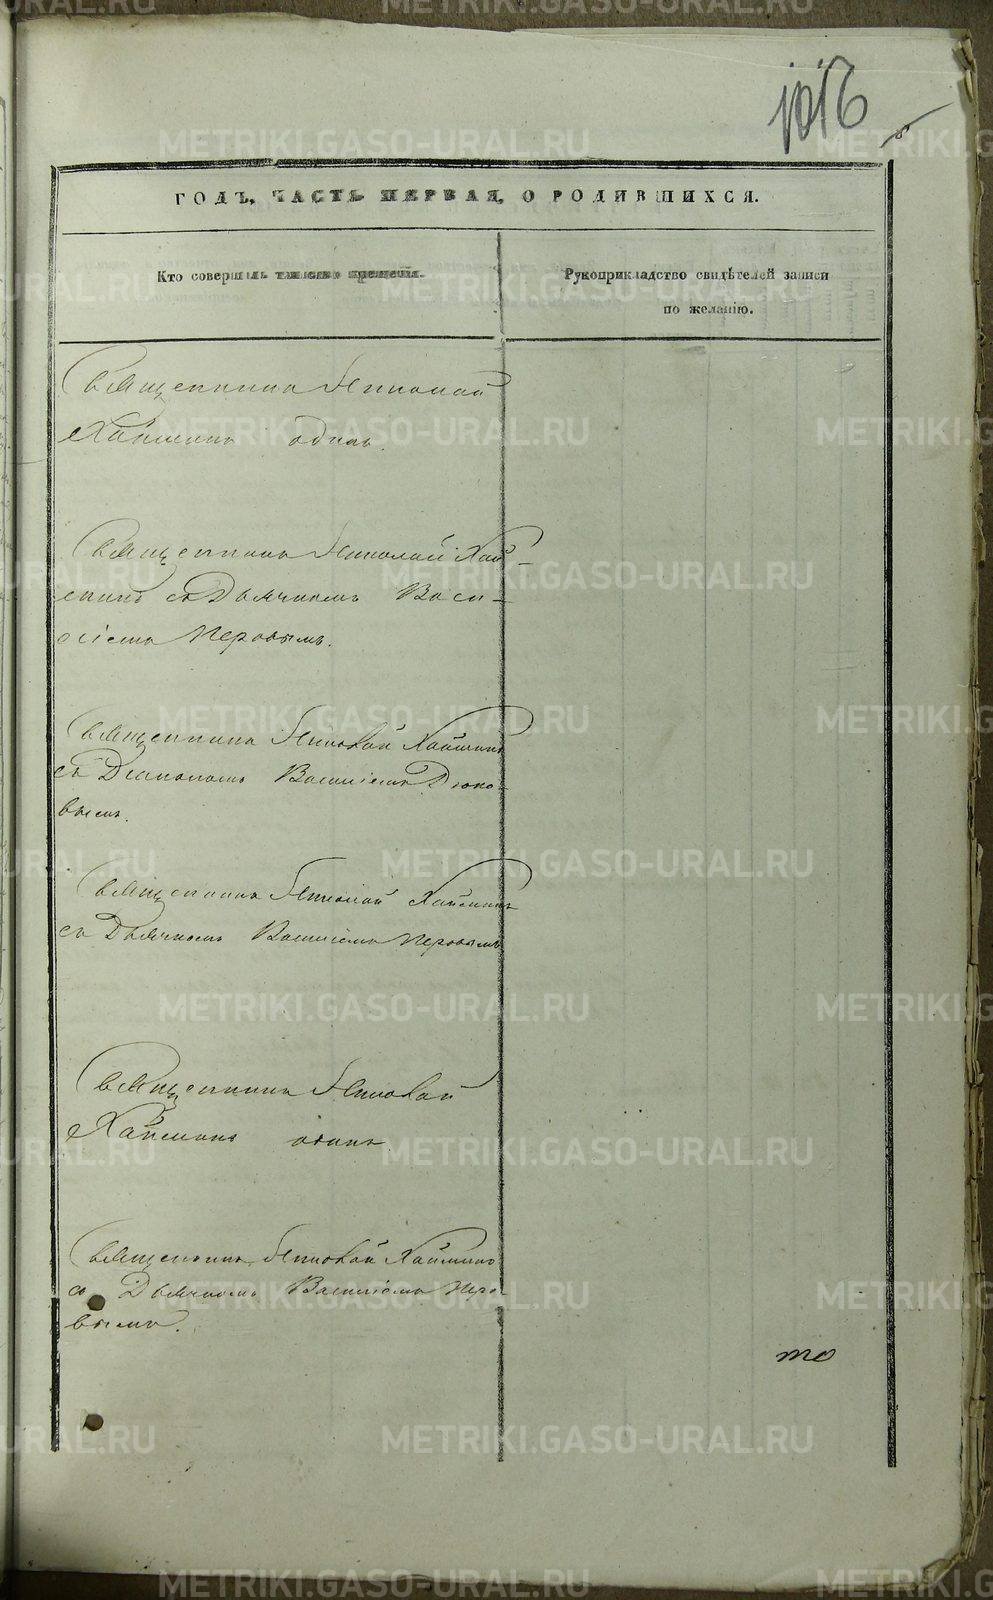 ГОДЪ, ЧАСТЬ ПЕРВАЯ, О РОДИВШИХСЯ.
Кто совершалъ таинство крещенія.
Рукоприкладство свидѣтелей записи
по желанію.
Священникъ Николай
Хайминъ одинъ
Священникъ Николай Хай-
минъ съ Дьячкомъ Васи-
ліемъ Первымъ.
Священникъ Николай Хайминъ
съ Діакономъ Василіемъ
вымъ.
Священникъ Николай Хайминъ
съ Дьячкомъ Василіемъ Первымъ
Священникъ Николай
Хайминъ одинъ
Священникъ Николай Хайминъ
съ Дьячкомъ Василіемъ Пер-
вымъ.
то
METRIKI.GASO-URAL.RU